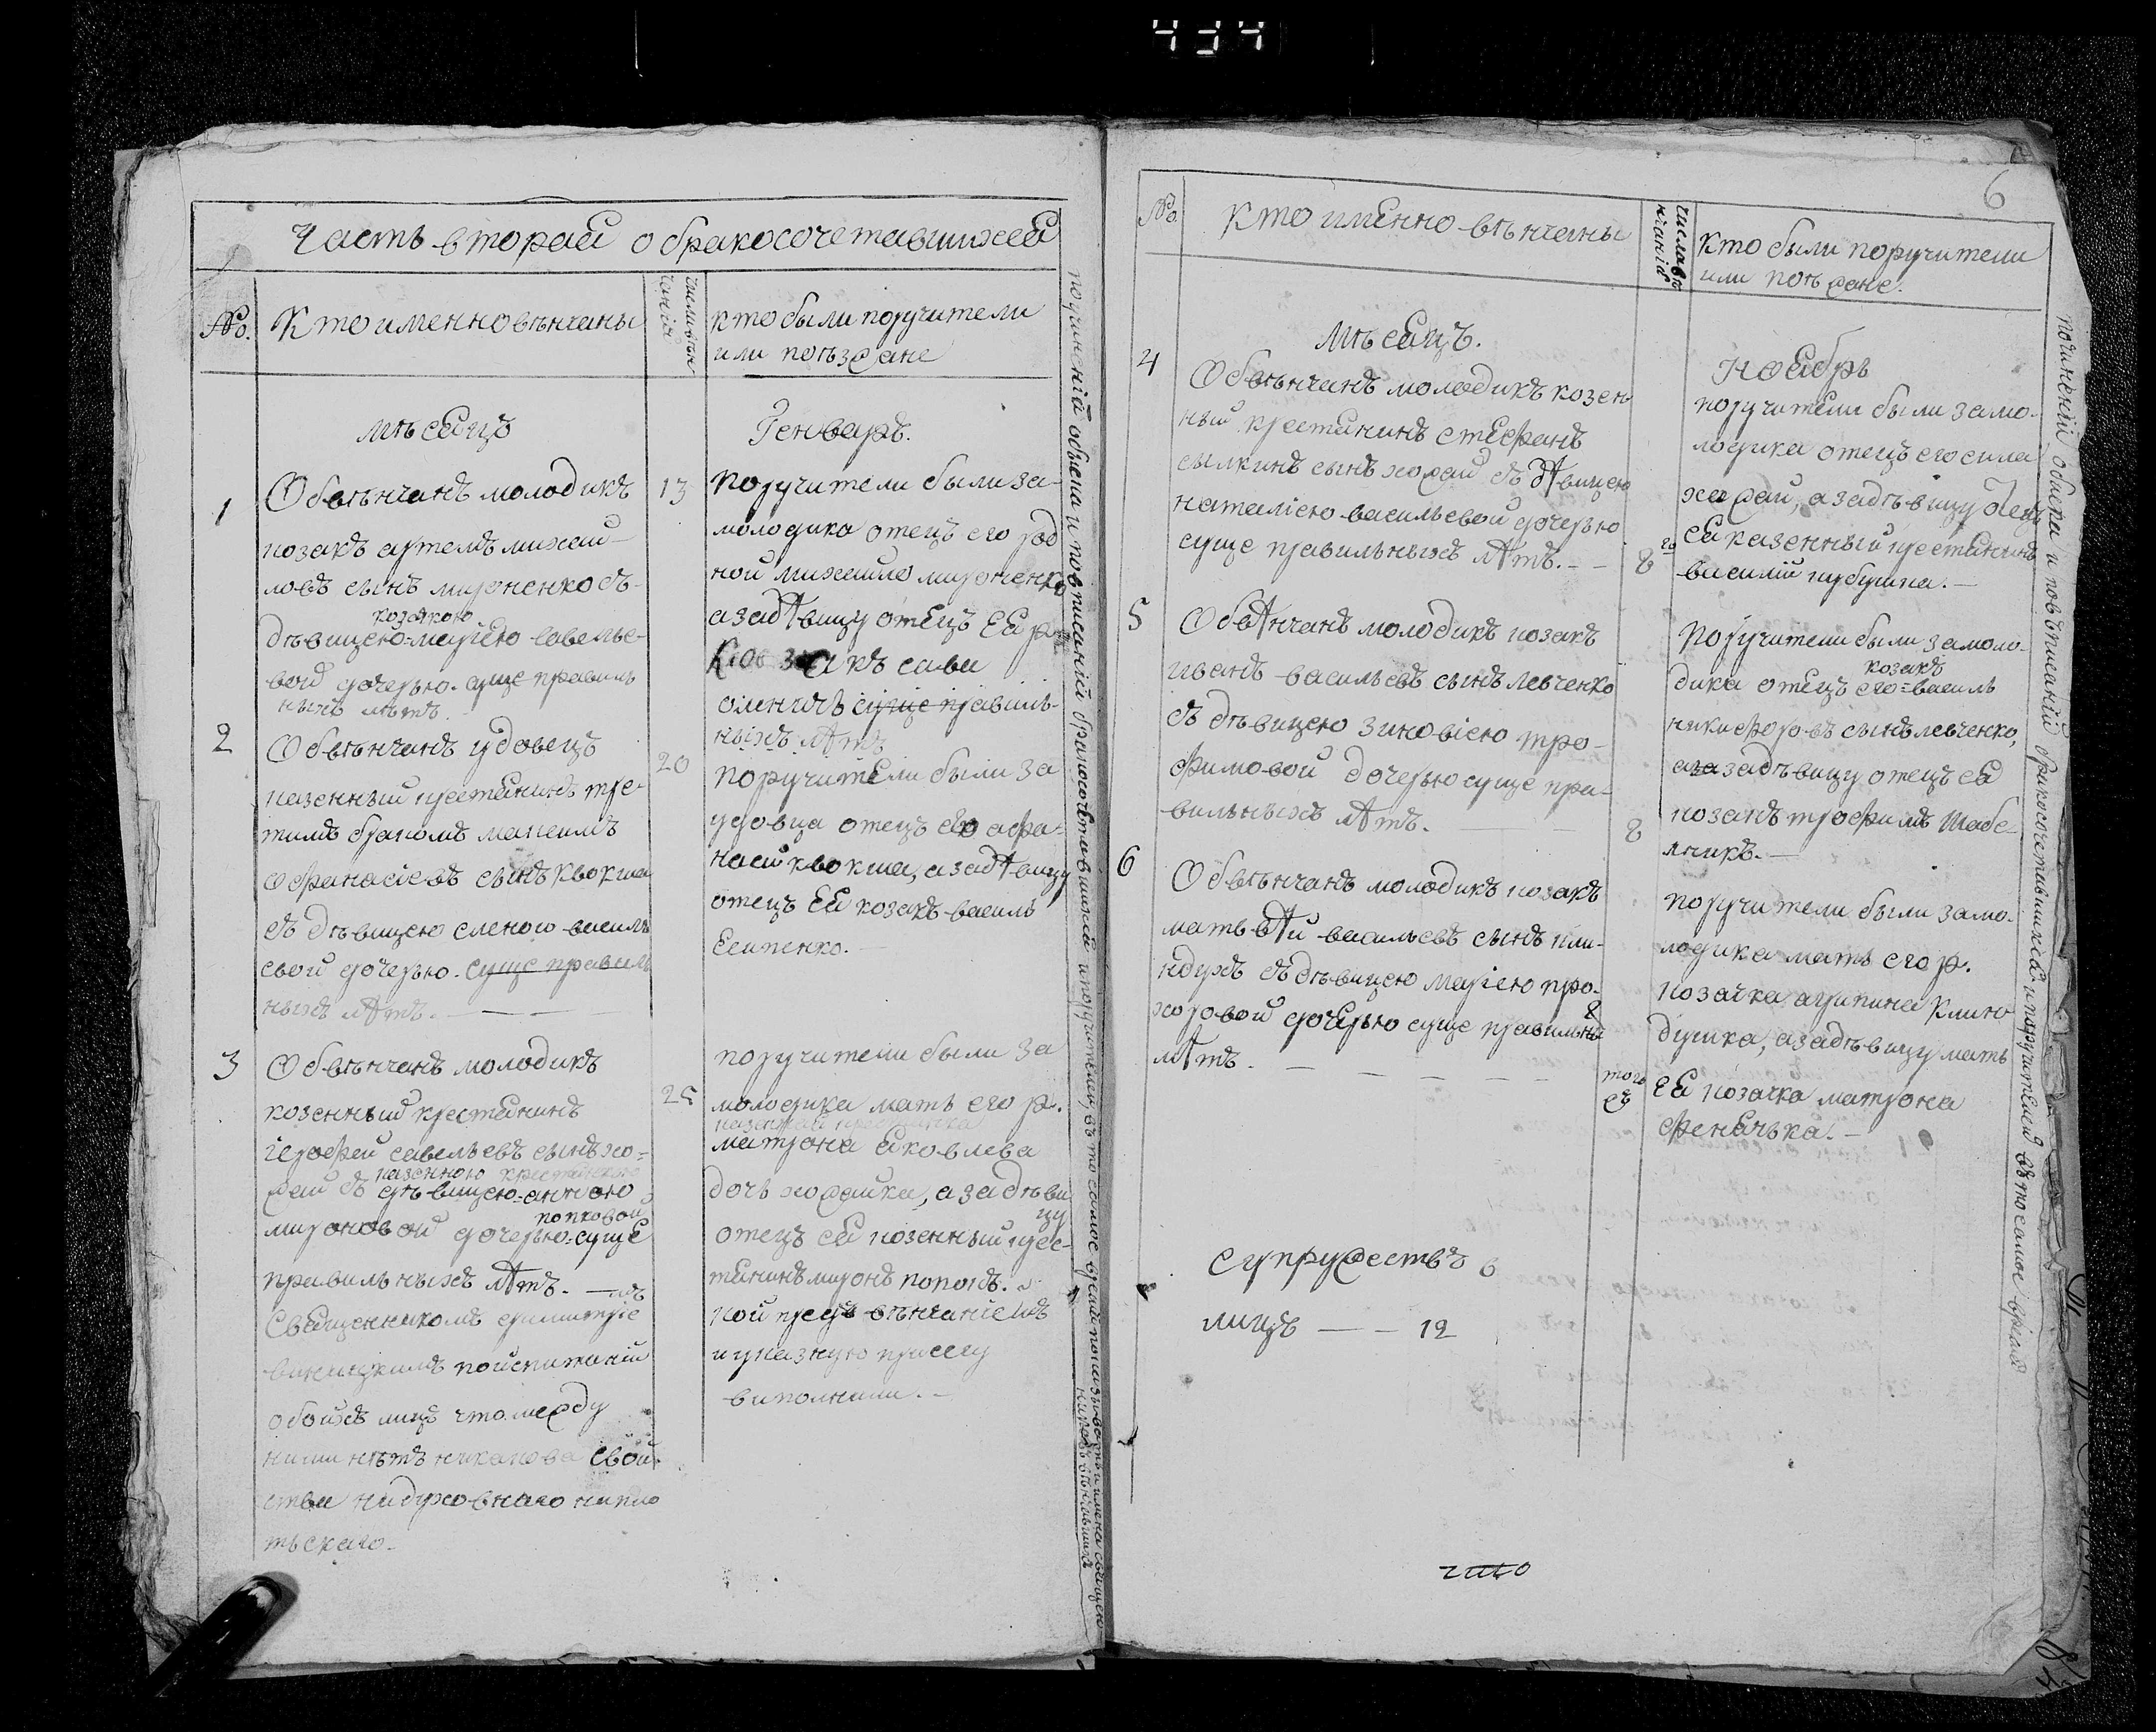 434
Часть вторая о бракосочетавшихся
№.
Кто именно вѣнчаны
число вѣн
чанія
кто были поручители
или поѣзжане
мѣсяцъ
Генварь.
1
Обвѣнчанъ молодикъ
козакъ артемъ михай-
ловъ сынъ мироненко съ
козачкою
дѣвицею маріею савелье-
вой дочерью. суще правиль
ныхъ лѣтъ.
13
Поручители были за
молодика отецъ его род
ной михайло мироненко
а за дѣвицу отецъ Ея
сава
суще правиль-
ныхъ лѣтъ
2
Обвѣнчанъ удовецъ
казенный крестянинъ тре-
тимъ бракомъ максимъ
афанасіевъ сынъ квокша
съ дѣвицею василі
евой дочерью. суще правиль
ныхъ лѣтъ.
20
Поручители были за
удовца отецъ его афа-
насій квокша, а за дѣвицу
отецъ Ея козакъ василь
Есипенко.
3
Обвѣнчанъ молодикъ
козенный крестянинъ
ерофей савельевъ сынъ хо-
казенною крестянкою
жай съ дѣвицею анною
попковой
мироновой дочерью суще
правильныхъ лѣтъ.
Священникомъ димитріе
виницкимъ по испитаніи
обоихъ лицъ что между
ними нѣтъ никакова свой-
ства ни духовнаго ни пло
тьскаго.
25
поручители были за
молодика мать его р.
казенная крестянка
матрона яковлева
дочь хожайка, а за дѣви
цу
отецъ ея козенный крес-
тянинъ миронъ попокъ.
кой предъ вѣнчаніемъ
и указную присягу
виполнили.
починеніи обыска и повписаніи бракосочетавшихся и поручителей, въ то самое время показывать и имена священно
никовъ вѣнчавшихъ
6
№
Кто именно вѣнчаны
число вѣ
нчанія
Кто были поручители
или поѣзжане.
Мѣсяцъ.
Ноябрь
4
Обвѣнчанъ молодикъ козен
ный крестянинъ стефанъ
силкинъ сынъ хожай съ дѣвицею
наталіею васильевой дочерью
суще правильныхъ лѣтъ.
8
го
поручители были за мо-
лодика отецъ его сила
хожай, а за дѣвицу отецъ
ея казенный крестянинъ
василій
5
Обвѣнчанъ молодикъ козакъ
иванъ васильевъ сынъ левченко
съ дѣвицею зиновіею тро-
фимовой дочерью суще пра-
вильныхъ лѣтъ.
8
Поручители были за моло-
козакъ
дика отецъ его василь
никифоровъ сынъ левченко,
а за дѣвицу отецъ ея
козакъ трофимъ шабе-
лникъ.
6
Обвѣнчанъ молодикъ козакъ
матьвѣй васильевъ сынъ кли-
ндухъ съ дѣвицею маріею про-
хоровой дочерью суще правильны
х
лѣтъ.
того
 єз
поручители были за мо-
лодика мать его р.
козачка агрипина клин
душка, а за дѣвицу мать
Ея козачка матрона
фенячька.
супружествъ 6
лицъ — — 12
починеніи обыска и повписаніи бракосочетавшихся и поручителей въ то самое время